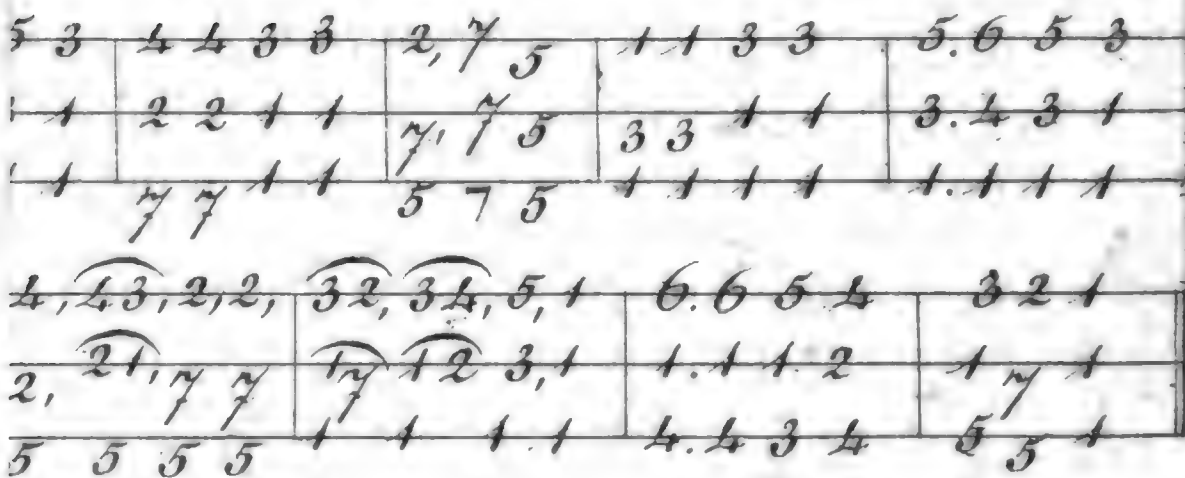 5 3 | 4 4 3 3 | 2, 7 5 | 1 1 3 3 | 5. 6 5 3
1 | 2 2 1 1 | 7, 7 5 | 3 3 1 1 | 3. 4 3 1
1 | 7 7 1 1 | 5 7 5 | 1 1 1 1 | 1. 1 1 1
4, 43, 2, 2, | 32, 34, 5, 1 | 6. 6 5 4 | 3 2 1
2, 21, 7 7 | 17 12 3, 1 | 1. 1 1. 2 | 1 7 1
5 5 5 5 | 1 1 1. 1 | 4. 4 3 4 | 5 5 1